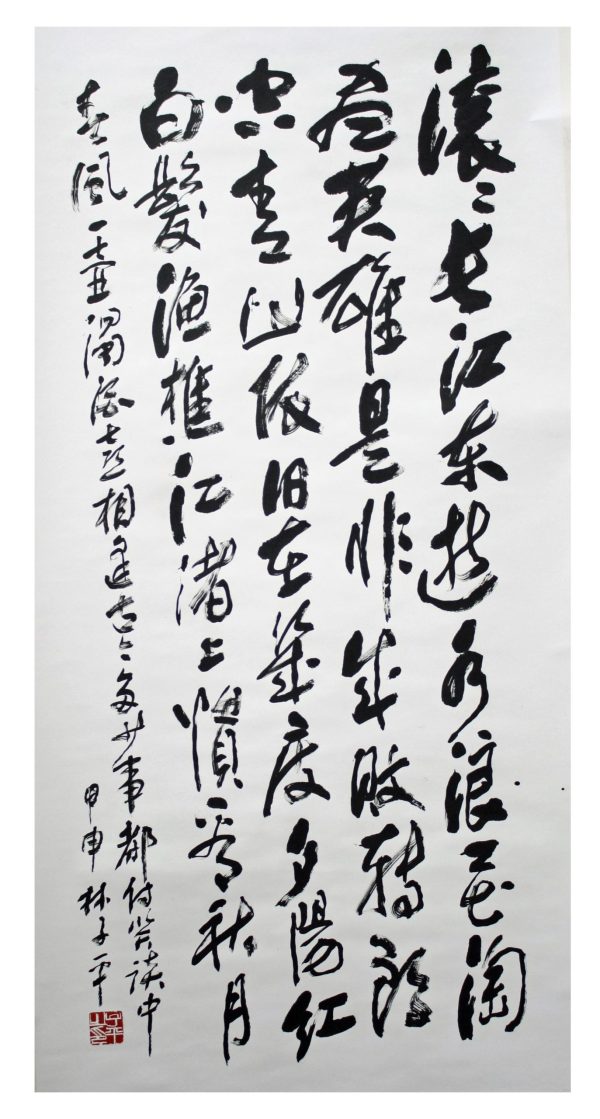 滚〻长江东逝水浪花淘
尽英雄是非成败转头
空青山依旧在幾度夕陽红
白髮渔樵江渚上惯看秋月
春風一壶濁酒喜相逢古今多少事都付笑谈中
甲申 林子平